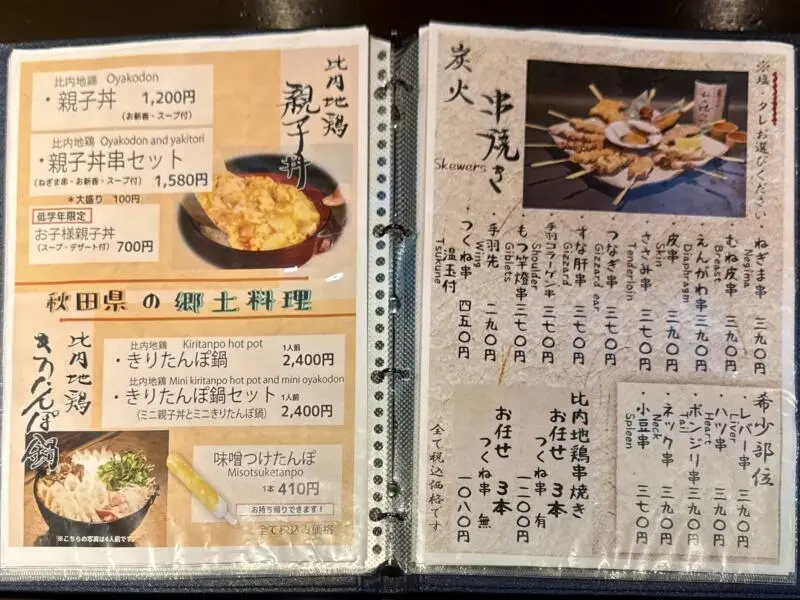 比内地鶏
親子丼
比内地鶏 Oyakodon
・親子丼 1,200円
(お新香・スープ付)
比内地鶏 Oyakodon and yakitori
・親子丼串セット
(ねぎま串・お新香・スープ付) 1,580円
＊大盛り 100円
低学年限定
お子様親子丼
(スープ・デザート付) 700円
秋田県の郷土料理
比内地鶏
きりたんぽ鍋
比内地鶏 Kiritanpo hot pot 1人前
・きりたんぽ鍋 2,400円
比内地鶏 Mini kiritanpo hot pot and mini oyakodon
・きりたんぽ鍋セット 1人前
(ミニ親子丼とミニきりたんぽ鍋) 2,400円
味噌つけたんぽ
Misotsuketanpo
1本 410円
お持ち帰りできます！
※こちらの写真は4人前です。
全て税込み価格
炭火
串焼き
Skewers
※塩・タレお選びください
・ねぎま串 三九〇円
Negima
・むね皮串 三九〇円
Breast
・えんがわ串 三九〇円
Diaphragm
・皮串 三九〇円
Skin
・ささみ串 三七〇円
Tenderloin
・つなぎ串 三七〇円
Gizzard ear
・すな肝串 三七〇円
Gizzard
・手羽コラーゲン串 三七〇円
Shoulder
・もつ竿燈串 三七〇円
Giblets
・手羽先 二九〇円
Wing
・つくね串 四五〇円
温玉付
Tsukune
希少部位
・レバー串 三九〇円
Liver
・ハツ串 三九〇円
Heart
・ボンジリ串 三九〇円
Tail
・ネック串 三九〇円
Neck
・小豆串 三七〇円
Spleen
比内地鶏串焼き
お任せ 3本
つくね串 有 一二〇〇円
お任せ 3本
つくね串 無 一〇八〇円
全て税込価格です